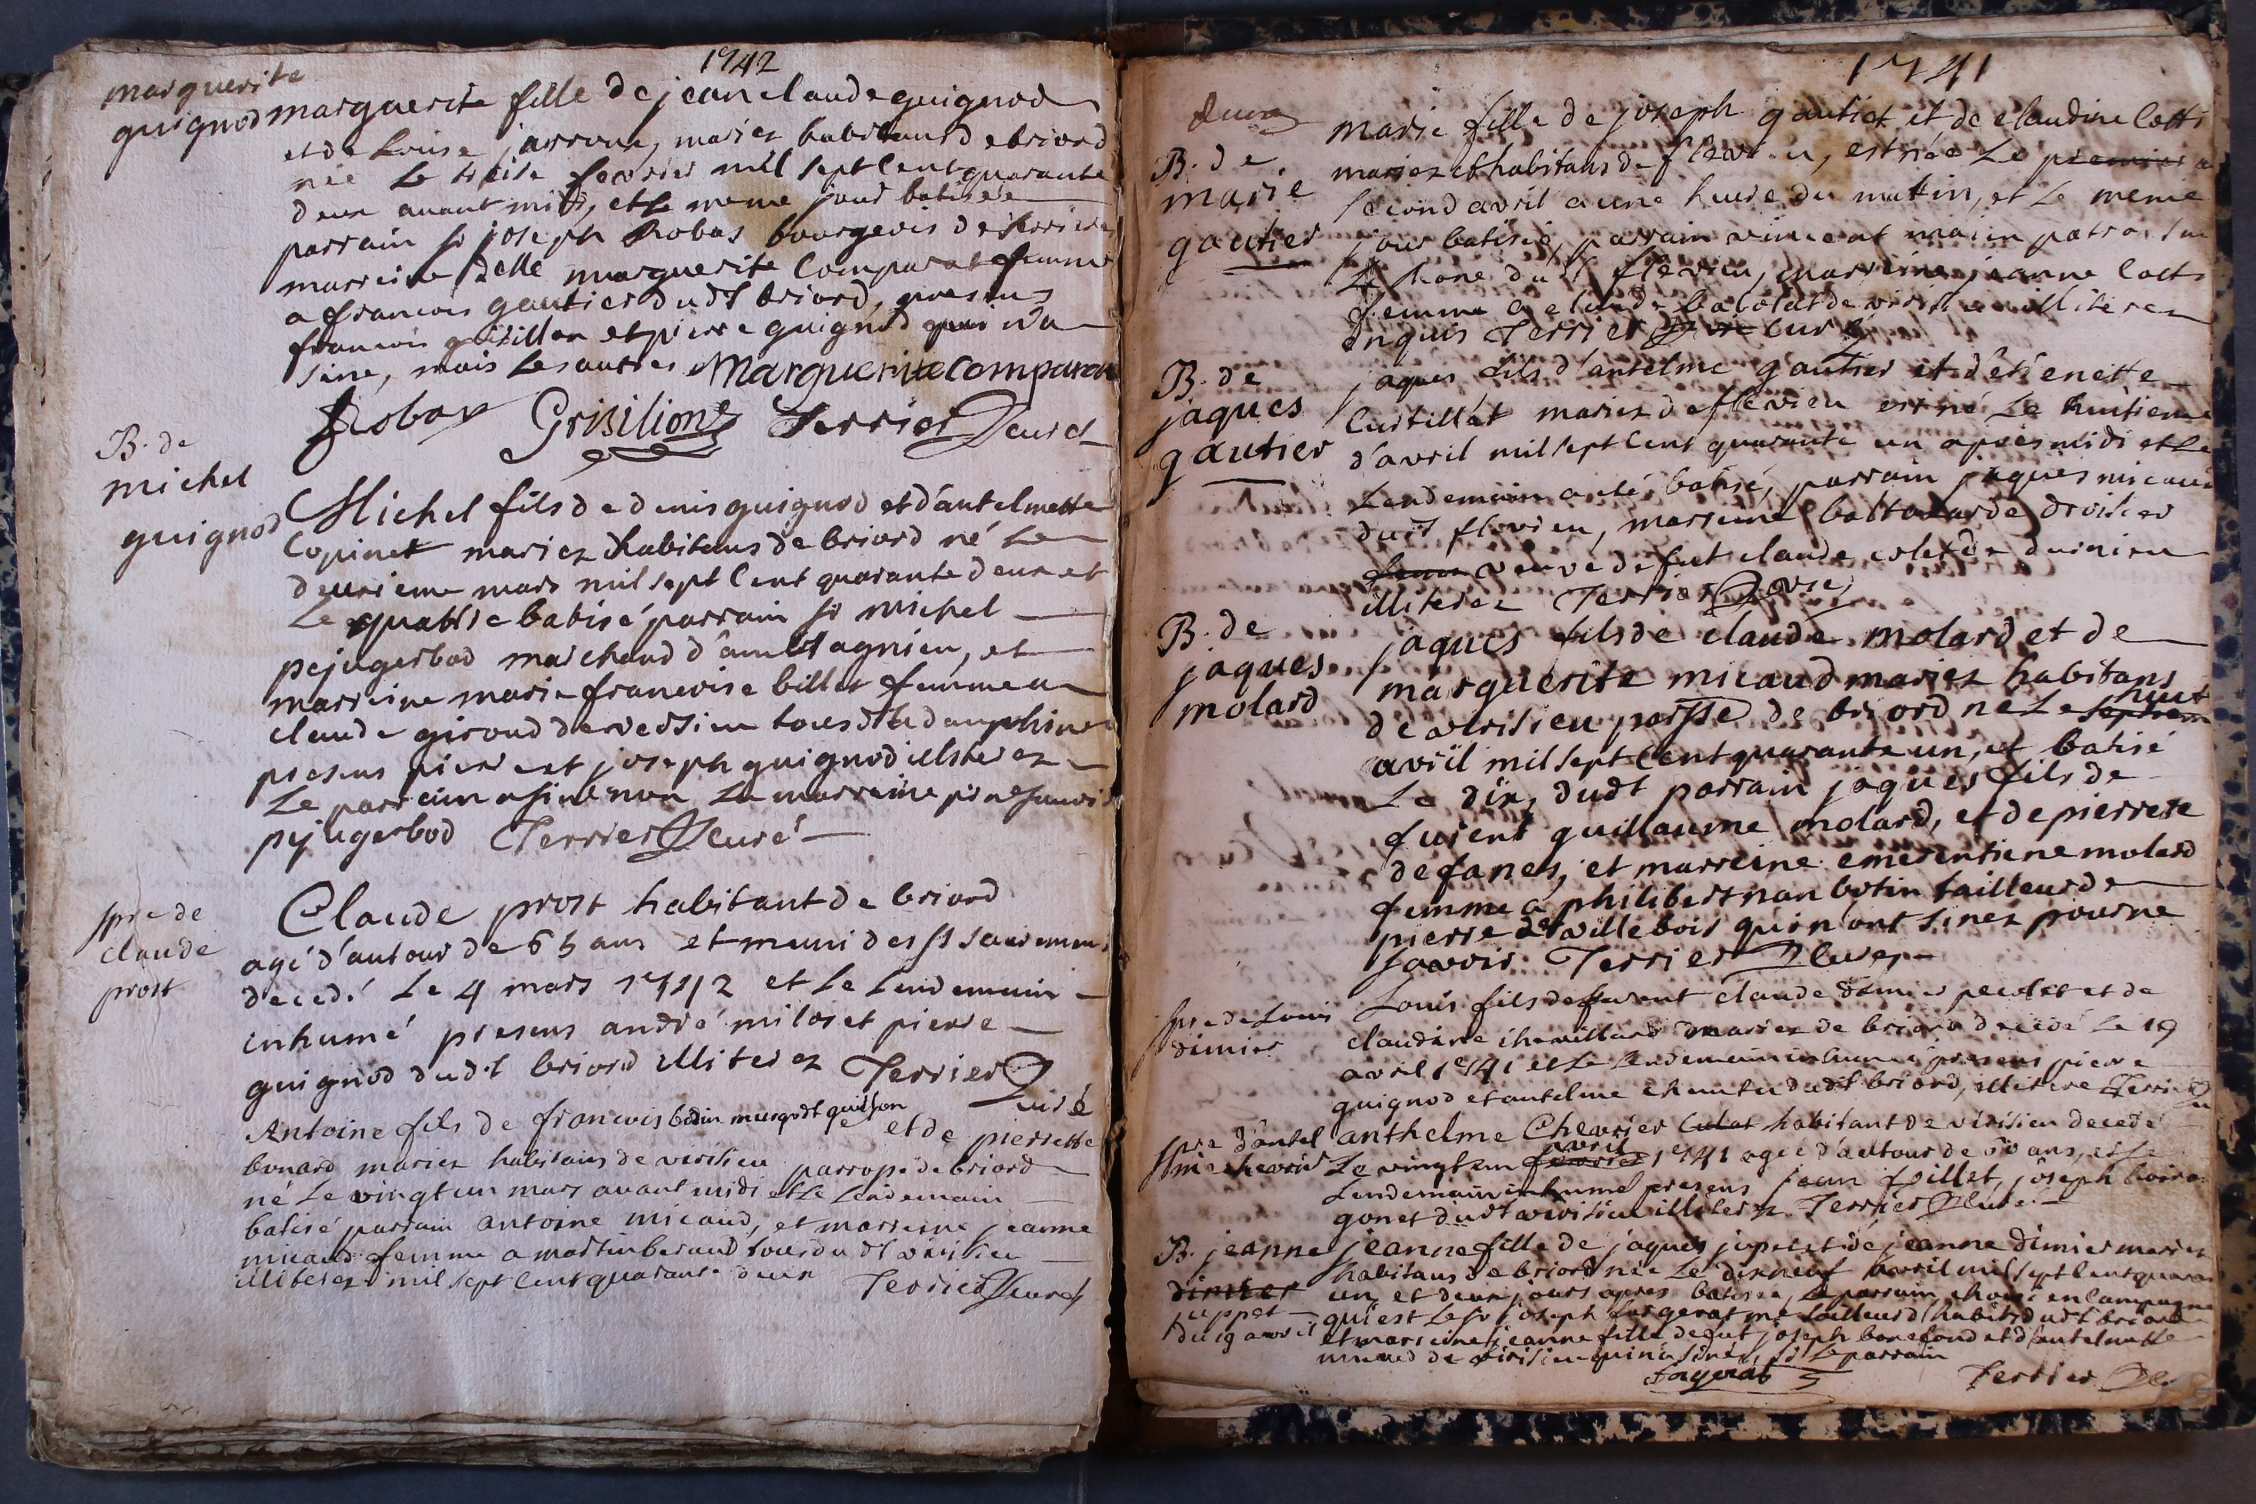 1742
marguerite
guignod
marguerite fille de jean claude guignod
et de Louise jarroux, mariez habitans de briord
née Le treise fevrier mil sept Cent quarante
deux avant midi, et le meme jour batisée
parrain sr joseph Robas bourgeois de
marreine delle marguerite Comparat femme
a francois gautier dudt briord, presens
francois grisillon et pierre guignod qui n'a
siné, mais Les autres Marguerite Comparat
Robas Grisilion Terrier Curé
B. de
michel
guignod
Michel fils de denis guignod et d'antelmette
Copinet mariez habitans de briord né Le
deuxieme mars mil sept Cent quarante deux et
Le quatre batisé parrain sr michel
pejugerbod marchand d'ambtagnieu, et
marreine marie francoise billet femme a
claude giroud de versieu tous du dauphiné
presens pierre et joseph guignod illiterez
Le parrain a siné non La marreine
pejugerbod Terrier Curé
spre de
claude
prost
Claude prost habitant de briord
agé d'autour de 65 ans et muni des sts sacremens
decedé Le 4 mars 1742 et Le Lendemain
inhumé presens andré milot et pierre
guignod dudt briord illiterez Terrier
Curé
Antoine fils de francois bodin et de pierrette
bonard mariez habitans de verisieu parropé de briord
né Le vingt un mars avant midi et Le Lendemain
batisé parrain antoine micaud, et marreine jeanne
micaud femme a martin beraud tous dudt virisieu
illiterez mil sept Cent quarante deux Terrier Curé
1741
B. de
marie
gautier
marie fille de joseph gautier et de claudine
mariez et habitans de flevieu, est née Le premier
second avril a une heure du matin, et Le meme
jour batisée, parrain vincent
Le Rone dudt flevieu, marreine jeanne
femme a claude de virisieu illiterez
Enquis Terrier curé
B. de
jaques
gautier
jaques fils d'antelme gautier et d'étienette
Curtillat mariez de flevieu est né Le huitieme
d'avril mil sept Cent quarante un apres midi et Le
Lendemain a été batisé, parrain jaques micaud
dudt flevieu, marreine baltazarde droisier
femme veuve de fut claude
illiterez Terrier Curé
B. de
jaques
molard
jaques fils de claude molard et de
marguerite micaud mariez habitans
de virisieu parsse de briord né Le septieme huit
avril mil sept Cent quarante un, et batisé
Le dix, dudt parrain jaques fils de
furent guillaume molard, et de pierrete
defanes, et marreine emerentiene molard
femme a philibert nanbotin tailleur de
pierre de villebois qui n'ont sinez pour ne
savoir Terrier Curé
spre de Louis
dimier
Louis fils de furent claude dimier pecolet et de
claudine chevillard mariez de briord decedé Le 19
avril 1741 et Le Lendemain inhumé presens pierre
guignod et antelme dudt briord, illitere Terrier
spre d'antel
me chevrier
anthelme Chevrier habitant de virisieu decedé
Le vingt un fevrier avril 1741 agé d'autour de 60 ans, et Le
Lendemain inhumé presens jean fillet, joseph
gonet dudt virisieu illiterez Terrier Curé
B. jeanne
dimier
juppet
du 19 avril
jeanne fille de jaques jupet et de jeanne dimier mariez
habitans de briord née Le dixneuf avril mil sept Cent quarante
un, et deux jours apres batisée, Le parrain choisi en Campagne
qui est Le sr joseph forgerat me tailleur d'habits dudt briord
et marreine jeanne fille de fut joseph bonefond et d'antelmette
micaud de virisieu qui n'a siné, si Le parrain
forgerat Terrier